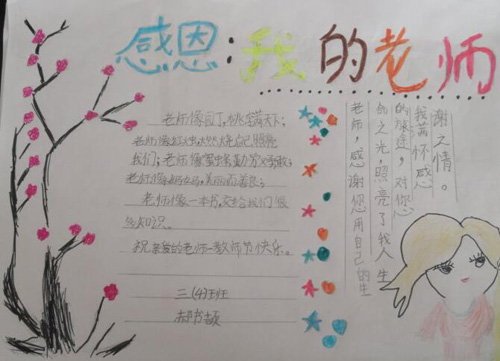 感恩:我的老师
老师像园丁,桃李满天下;
老师像红烛,燃烧自己照亮
我们;老师像蜜蜂,勤劳又勇敢;
老师像妈妈,美丽而善良;
老师像一本书,交给我们很
多知识。
祝亲爱的老师:教师节快乐。
三(4)班
郝书
老师,感谢您用自己的生
命之光,照亮了我人生
的旅途,对您
我满怀感
谢之情。